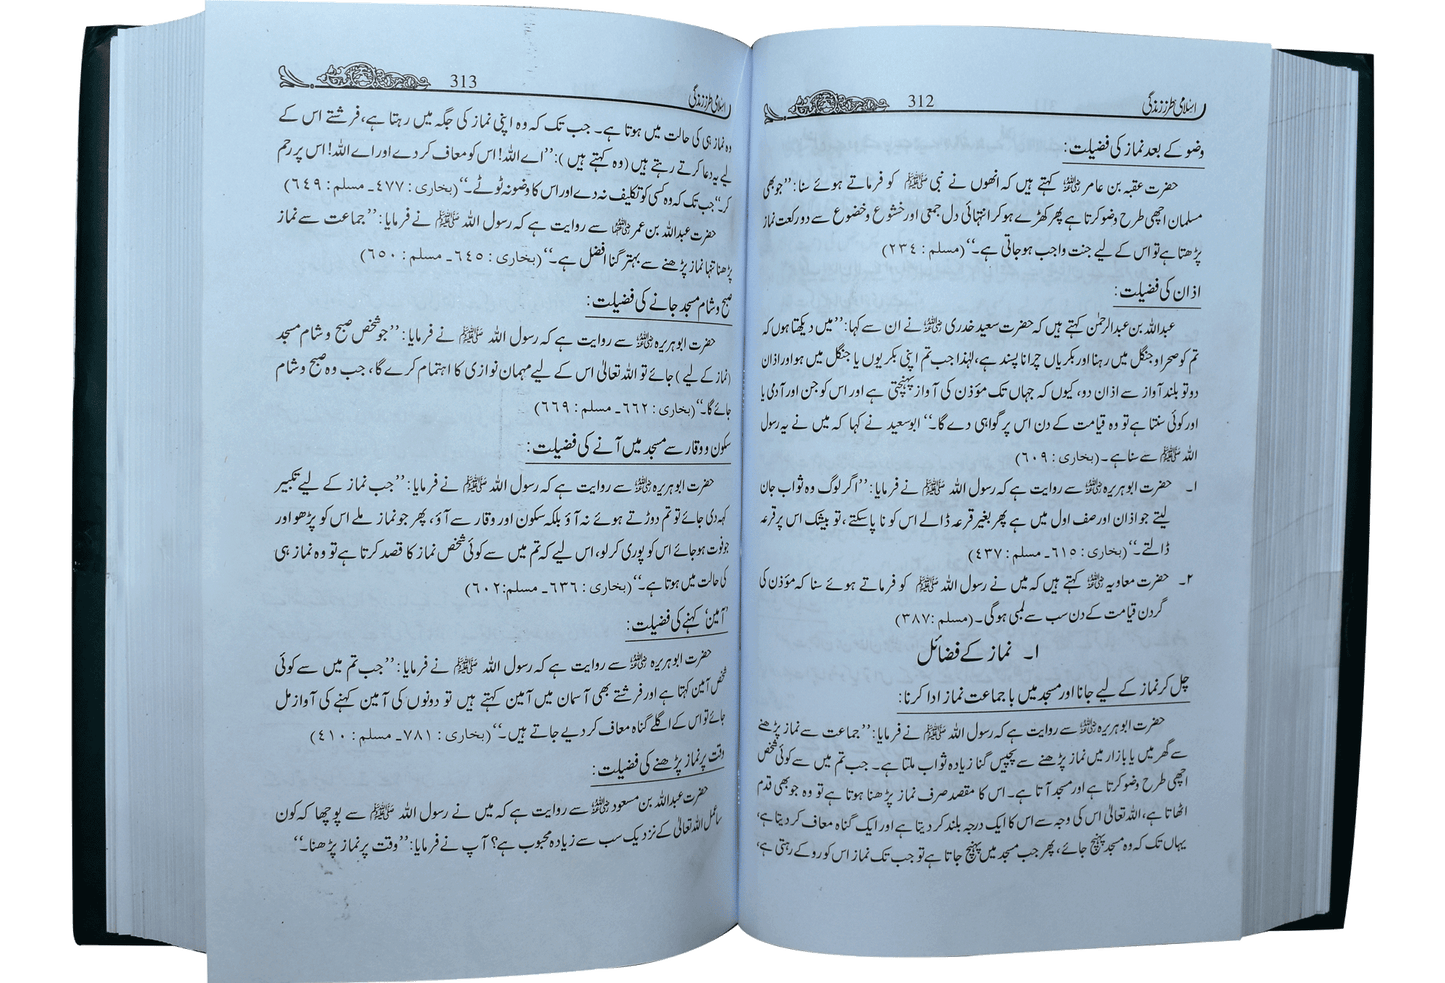 اسلامی طرز زندگی
312
وضو کے بعد نماز کی فضیلت:
حضرت عقبہ بن عامر رضی اللہ عنہ کہتے ہیں کہ انھوں نے نبی ﷺ کو فرماتے ہوئے سنا: ’’جو بھی
مسلمان اچھی طرح وضو کرتا ہے پھر کھڑے ہو کر انتہائی دل جمعی اور خشوع و خضوع سے دو رکعت نماز
پڑھتا ہے تو اس کے لیے جنت واجب ہو جاتی ہے۔‘‘ (مسلم : ۲۳۴)
اذان کی فضیلت:
عبداللہ بن عبدالرحمٰن کہتے ہیں کہ حضرت سعید خدری رضی اللہ عنہ نے ان سے کہا: ’’میں دیکھتا ہوں کہ
تم کو صحرا و جنگل میں رہنا اور بکریاں چرانا پسند ہے، لہٰذا جب تم اپنی بکریوں یا جنگل میں ہو اور اذان
دو تو بلند آواز سے اذان دو، کیوں کہ جہاں تک مؤذن کی آواز پہنچتی ہے اور اس کو جن اور آدمی یا
اور کوئی سنتا ہے تو وہ قیامت کے دن اس پر گواہی دے گا۔‘‘ ابوسعید نے کہا کہ میں نے یہ رسول
اللہ ﷺ سے سنا ہے۔ (بخاری : ۶۰۹)
۱۔ حضرت ابوہریرہ رضی اللہ عنہ سے روایت ہے کہ رسول اللہ ﷺ نے فرمایا: ’’اگر لوگ وہ ثواب جان
لیتے جو اذان اور صف اول میں ہے پھر بغیر قرعہ ڈالے اس کو نا پا سکتے، تو بیشک اس پر قرعہ
ڈالتے۔‘‘ (بخاری : ۶۱۵۔ مسلم : ۴۳۷)
۲۔ حضرت معاویہ رضی اللہ عنہ کہتے ہیں کہ میں نے رسول اللہ ﷺ کو فرماتے ہوئے سنا کہ مؤذن کی
گردن قیامت کے دن سب سے لمبی ہوگی۔ (مسلم :۳۸۷)
۱۔ نماز کے فضائل
چل کر نماز کے لیے جانا اور مسجد میں با جماعت نماز ادا کرنا:
حضرت ابوہریرہ رضی اللہ عنہ سے روایت ہے کہ رسول اللہ ﷺ نے فرمایا: ’’جماعت سے نماز پڑھنے
سے گھر میں یا بازار میں نماز پڑھنے سے پچیس گنا زیادہ ثواب ملتا ہے۔ جب تم میں سے کوئی شخص
اچھی طرح وضو کرتا ہے اور مسجد آتا ہے۔ اس کا مقصد صرف نماز پڑھنا ہوتا ہے تو وہ جو بھی قدم
اٹھاتا ہے، اللہ تعالیٰ اس کی وجہ سے اس کا ایک درجہ بلند کر دیتا ہے اور ایک گناہ معاف کر دیتا ہے،
یہاں تک کہ وہ مسجد پہنچ جائے، پھر جب مسجد میں پہنچ جاتا ہے تو جب تک نماز اس کو روکے رہتی ہے،
اسلامی طرز زندگی
313
وہ نماز ہی کی حالت میں ہوتا ہے۔ جب تک کہ وہ اپنی نماز کی جگہ میں رہتا ہے، فرشتے اس کے
لیے یہ دعا کرتے رہتے ہیں (وہ کہتے ہیں): ’’اے اللہ! اس کو معاف کر دے اور اے اللہ! اس پر رحم
کر‘‘ جب تک کہ وہ کسی کو تکلیف نہ دے اور اس کا وضو نہ ٹوٹے۔‘‘ (بخاری : ۴۷۷۔ مسلم : ۶۴۹)
حضرت عبداللہ بن عمر رضی اللہ عنہما سے روایت ہے کہ رسول اللہ ﷺ نے فرمایا: ’’جماعت سے نماز
پڑھنا تنہا نماز پڑھنے سے بہتر گنا افضل ہے۔‘‘ (بخاری : ۶۴۵۔ مسلم : ۶۵۰)
صبح و شام مسجد جانے کی فضیلت:
حضرت ابوہریرہ رضی اللہ عنہ سے روایت ہے کہ رسول اللہ ﷺ نے فرمایا: ’’جو شخص صبح و شام مسجد
(نماز کے لیے) جائے تو اللہ تعالیٰ اس کے لیے مہمان نوازی کا اہتمام کرے گا، جب وہ صبح و شام
جائے گا۔‘‘ (بخاری : ۶۶۲۔ مسلم : ۶۶۹)
سکون و وقار سے مسجد میں آنے کی فضیلت:
حضرت ابوہریرہ رضی اللہ عنہ سے روایت ہے کہ رسول اللہ ﷺ نے فرمایا: ’’جب نماز کے لیے تکبیر
کہہ دی جائے تو تم دوڑتے ہوئے نہ آؤ بلکہ سکون اور وقار سے آؤ، پھر جو نماز ملے اس کو پڑھو اور
جو فوت ہو جائے اس کو پوری کر لو، اس لیے کہ تم میں سے کوئی شخص نماز کا قصد کرتا ہے تو وہ نماز ہی
کی حالت میں ہوتا ہے۔‘‘ (بخاری : ۶۳۶۔ مسلم:۶۰۲)
’آمین‘ کہنے کی فضیلت:
حضرت ابوہریرہ رضی اللہ عنہ سے روایت ہے کہ رسول اللہ ﷺ نے فرمایا: ’’جب تم میں سے کوئی
شخص آمین کہتا ہے اور فرشتے بھی آسمان میں آمین کہتے ہیں تو دونوں کی آمین کہنے کی آواز مل
جائے تو اس کے اگلے گناہ معاف کر دیے جاتے ہیں۔‘‘ (بخاری : ۷۸۱۔ مسلم : ۴۱۰)
وقت پر نماز پڑھنے کی فضیلت:
حضرت عبداللہ بن مسعود رضی اللہ عنہ سے روایت ہے کہ میں نے رسول اللہ ﷺ سے پوچھا کہ کون
سا عمل اللہ تعالیٰ کے نزدیک سب سے زیادہ محبوب ہے؟ آپ نے فرمایا: ’’وقت پر نماز پڑھنا۔‘‘